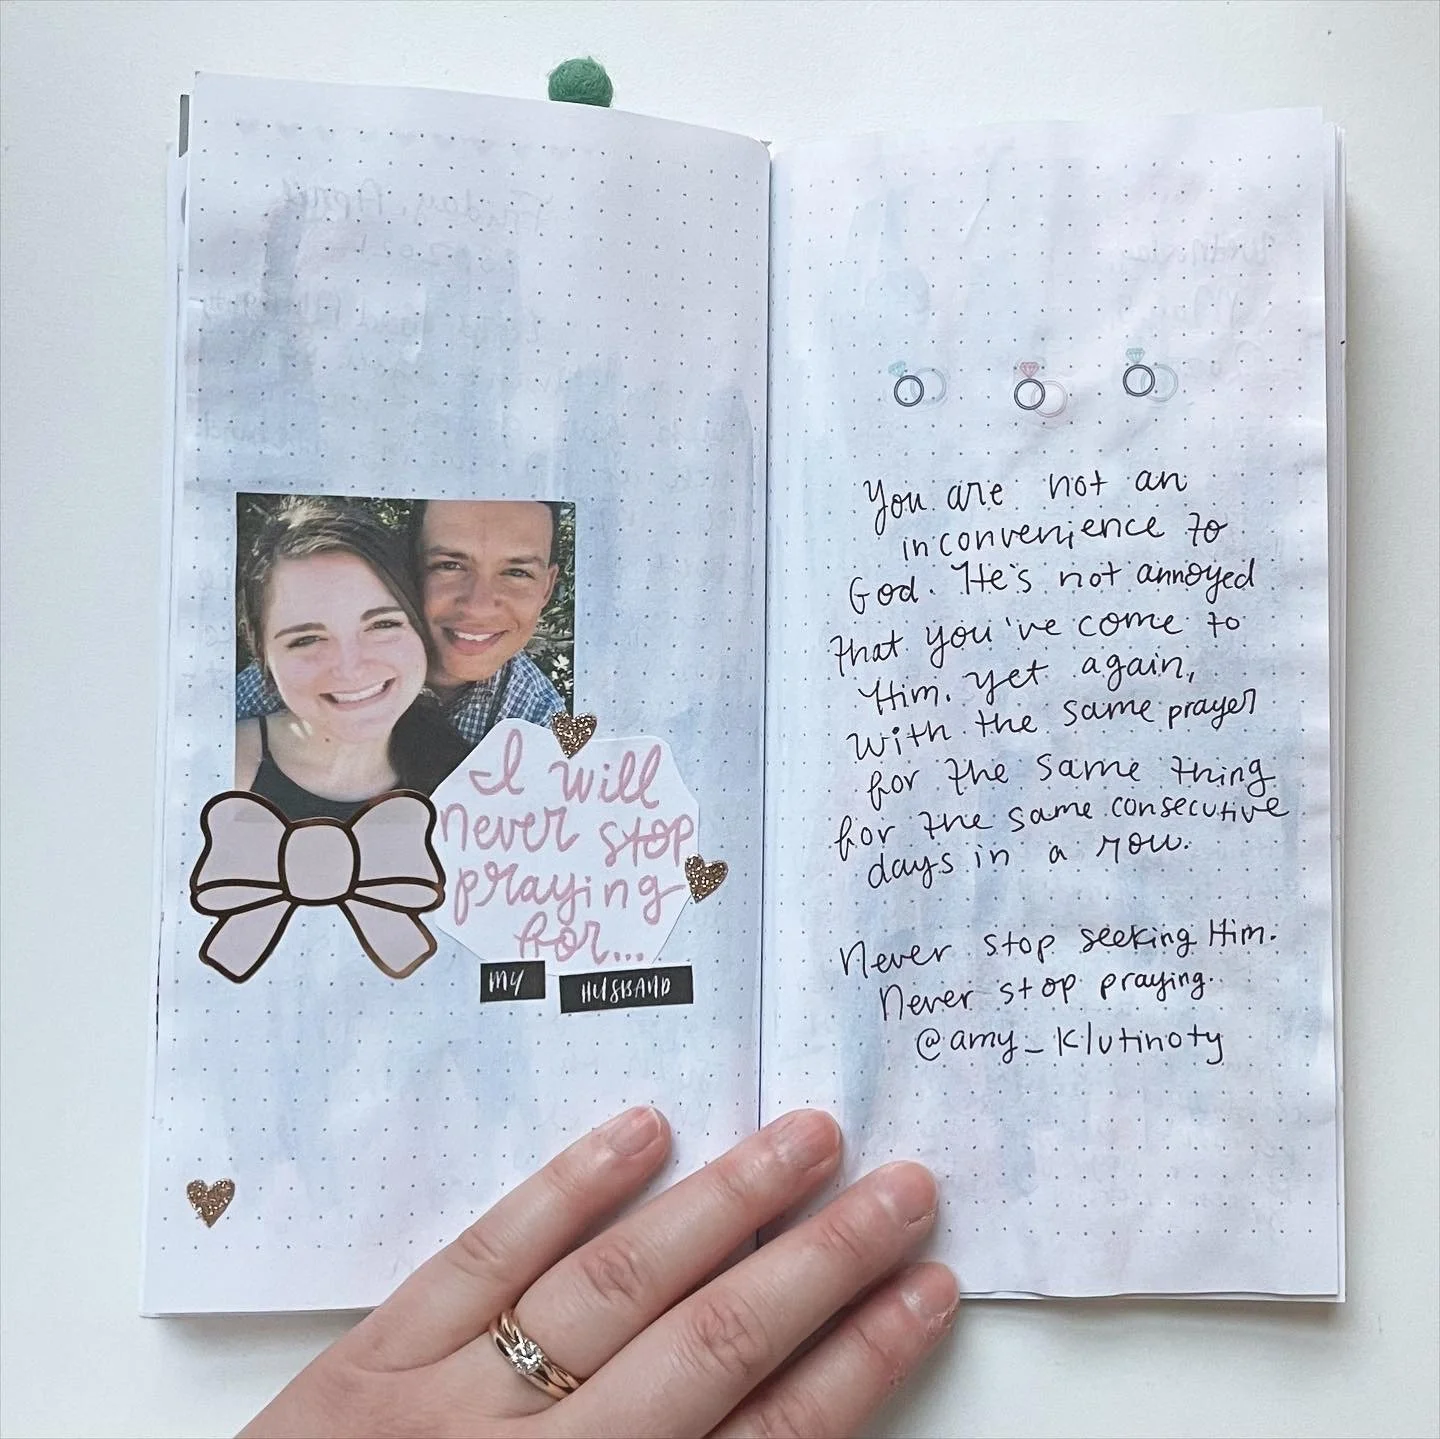 I will
never stop
praying
for...
MY HUSBAND
You are not an
inconvenience to
God. He's not annoyed
that you've come to
Him. yet again,
with the same prayer
for the same thing
for the same consecutive
days in a row.
Never stop seeking Him.
Never stop praying.
@amy_klutinoty